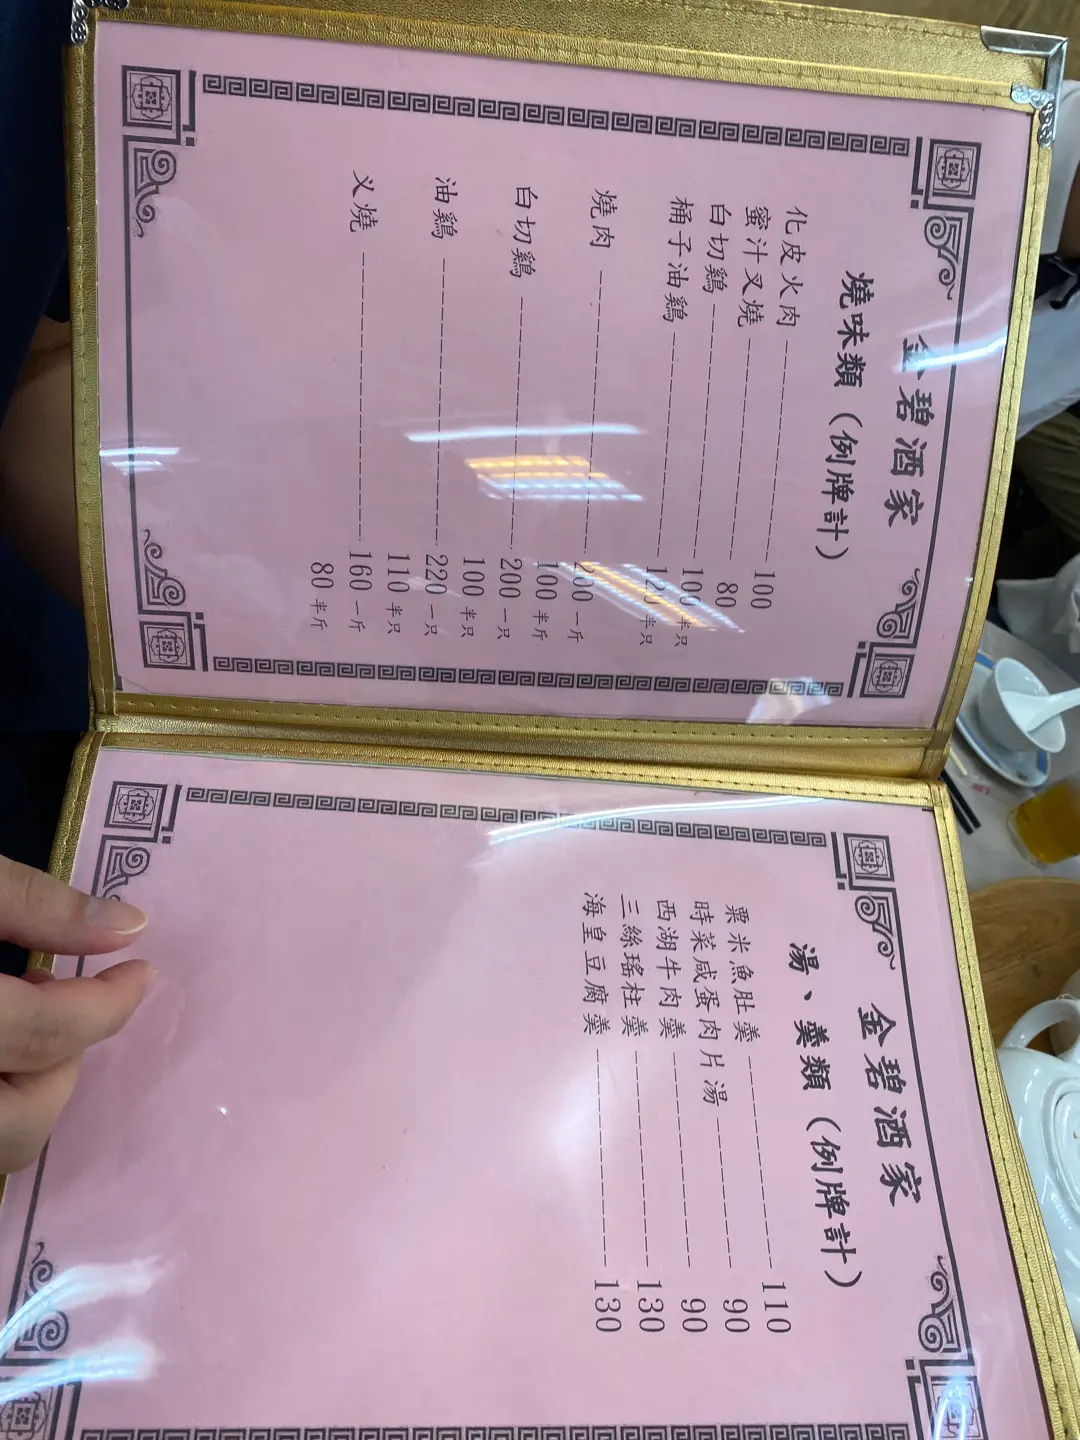 金碧酒家
燒味類（例牌計）
化皮火肉 100
蜜汁叉燒 80
白切鷄 100 半只
桶子油鷄 120 半只
燒肉 200 一斤
100 半斤
白切鷄 200 一只
100 半只
油鷄 220 一只
110 半只
叉燒 160 一斤
80 半斤
金碧酒家
湯、羹類（例牌計）
粟米魚肚羹 110
時菜咸蛋肉片湯 90
西湖牛肉羹 90
三絲瑤柱羹 130
海皇豆腐羹 130